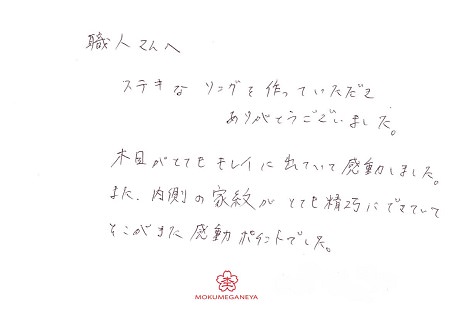 職人さんへ
ステキな リングを作っていただき
ありがとうございました。
木目がとてもキレイに出ていて感動しました。
また、内側の家紋がとても精巧にできていて
そこがまた感動ポイントでした。
MOKUMEGANEYA